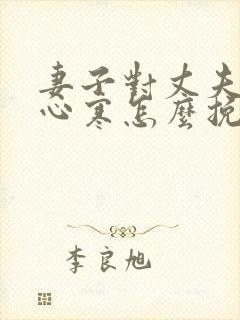 妻子對丈夫
心寒怎麼挽
李良旭